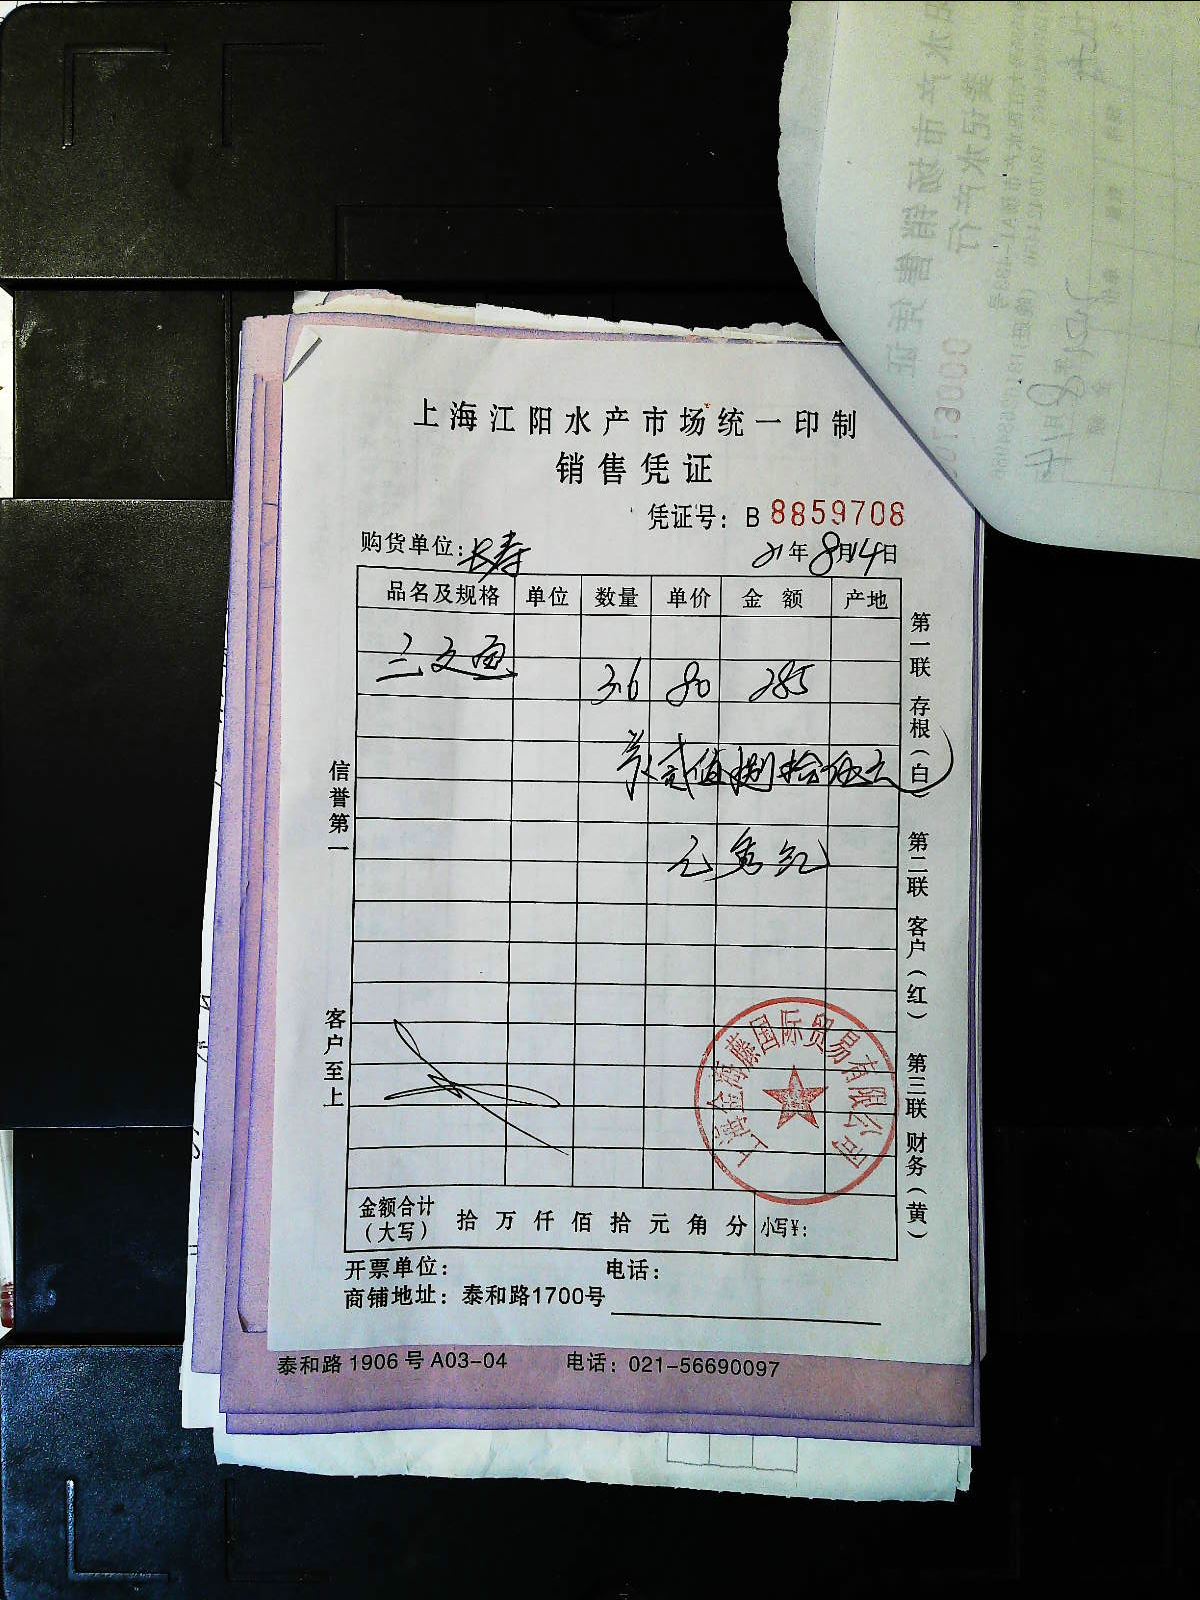 上海江阳水产市场统一印制
销售凭证
凭证号：B 8859708
购货单位：长寿 21年8月14日
品名及规格 单位 数量 单价 金额 产地
三文鱼 3.6 80 285
贰佰捌拾伍元
信誉第一
客户至上
第一联 存根（白）
第二联 客户（红）
第三联 财务（黄）
上海金海藤国际贸易有限公司
金额合计（大写） 拾 万 仟 佰 拾 元 角 分 小写¥：
开票单位： 电话：
商铺地址：泰和路1700号
泰和路1906号A03-04 电话：021-56690097